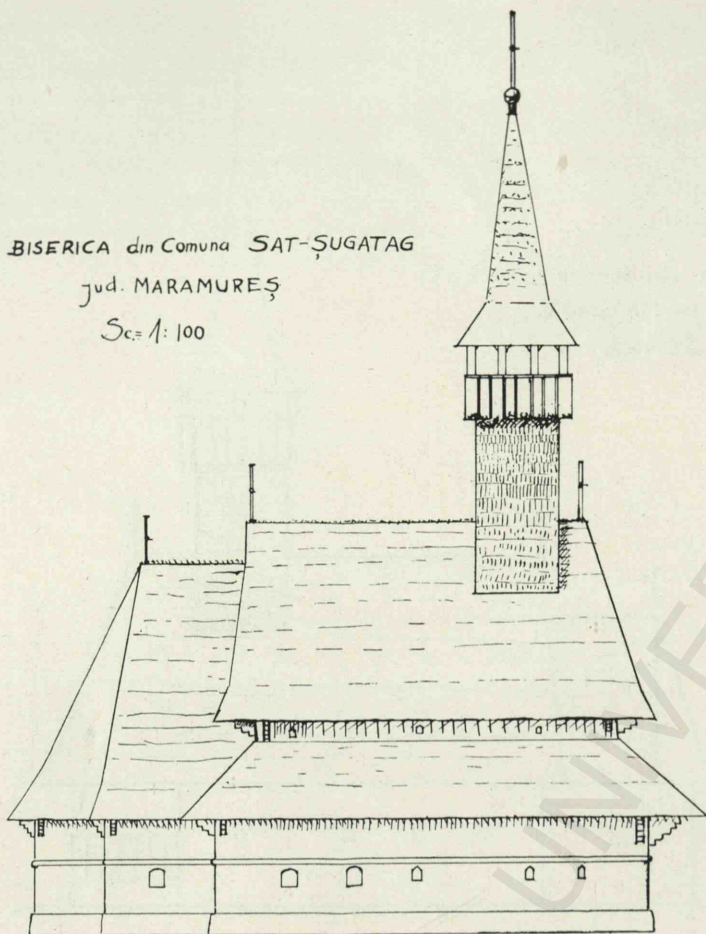 BISERICA din Comuna SAT-ȘUGATAG
jud. MARAMUREȘ
Sc.= 1:100
UNIVE